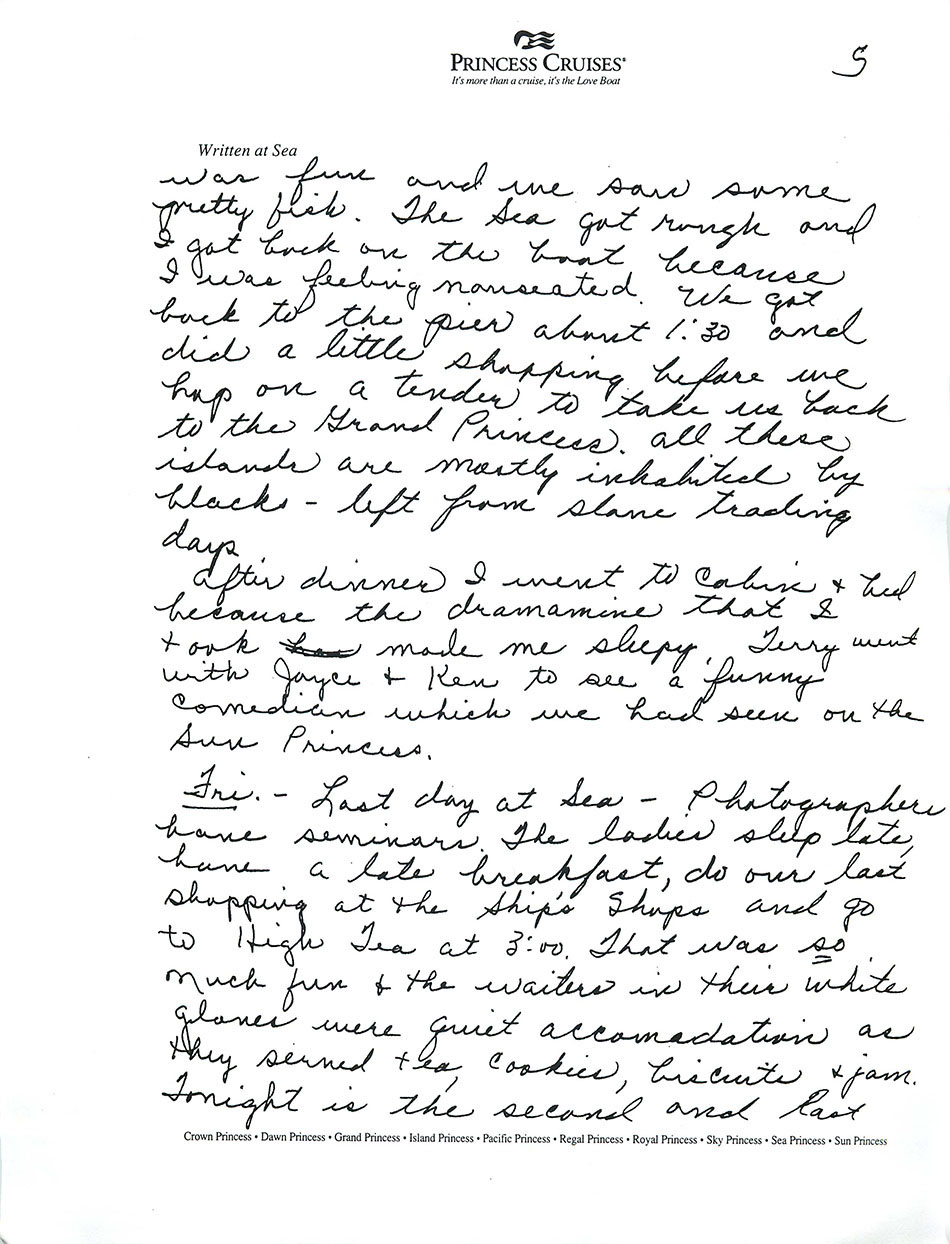 PRINCESS CRUISES®
It's more than a cruise, it's the Love Boat
5
Written at Sea
was fun and we saw some
pretty fish. The Sea got rough and
I got back on the boat because
I was feeling nauseated. We got
back to the pier about 1:30 and
did a little shopping before we
hop on a tender to take us back
to the Grand Princess. All these
islands are mostly inhabited by
blacks - left from slave trading
days
After dinner I went to Cabin & bed
because the dramamine that I
took made me sleepy. Terry went
with Joyce & Ken to see a funny
comedian which we had seen on the
Sun Princess.
Fri. - Last day at Sea - Photographers
have seminars. The ladies sleep late,
have a late breakfast, do our last
shopping at the Ship's Shops and go
to High Tea at 3:00. That was so
much fun & the waiters in their white
gloves were quiet accomadation as
they served tea, cookies, biscuits & jam.
Tonight is the second and last
Crown Princess • Dawn Princess • Grand Princess • Island Princess • Pacific Princess • Regal Princess • Royal Princess • Sky Princess • Sea Princess • Sun Princess